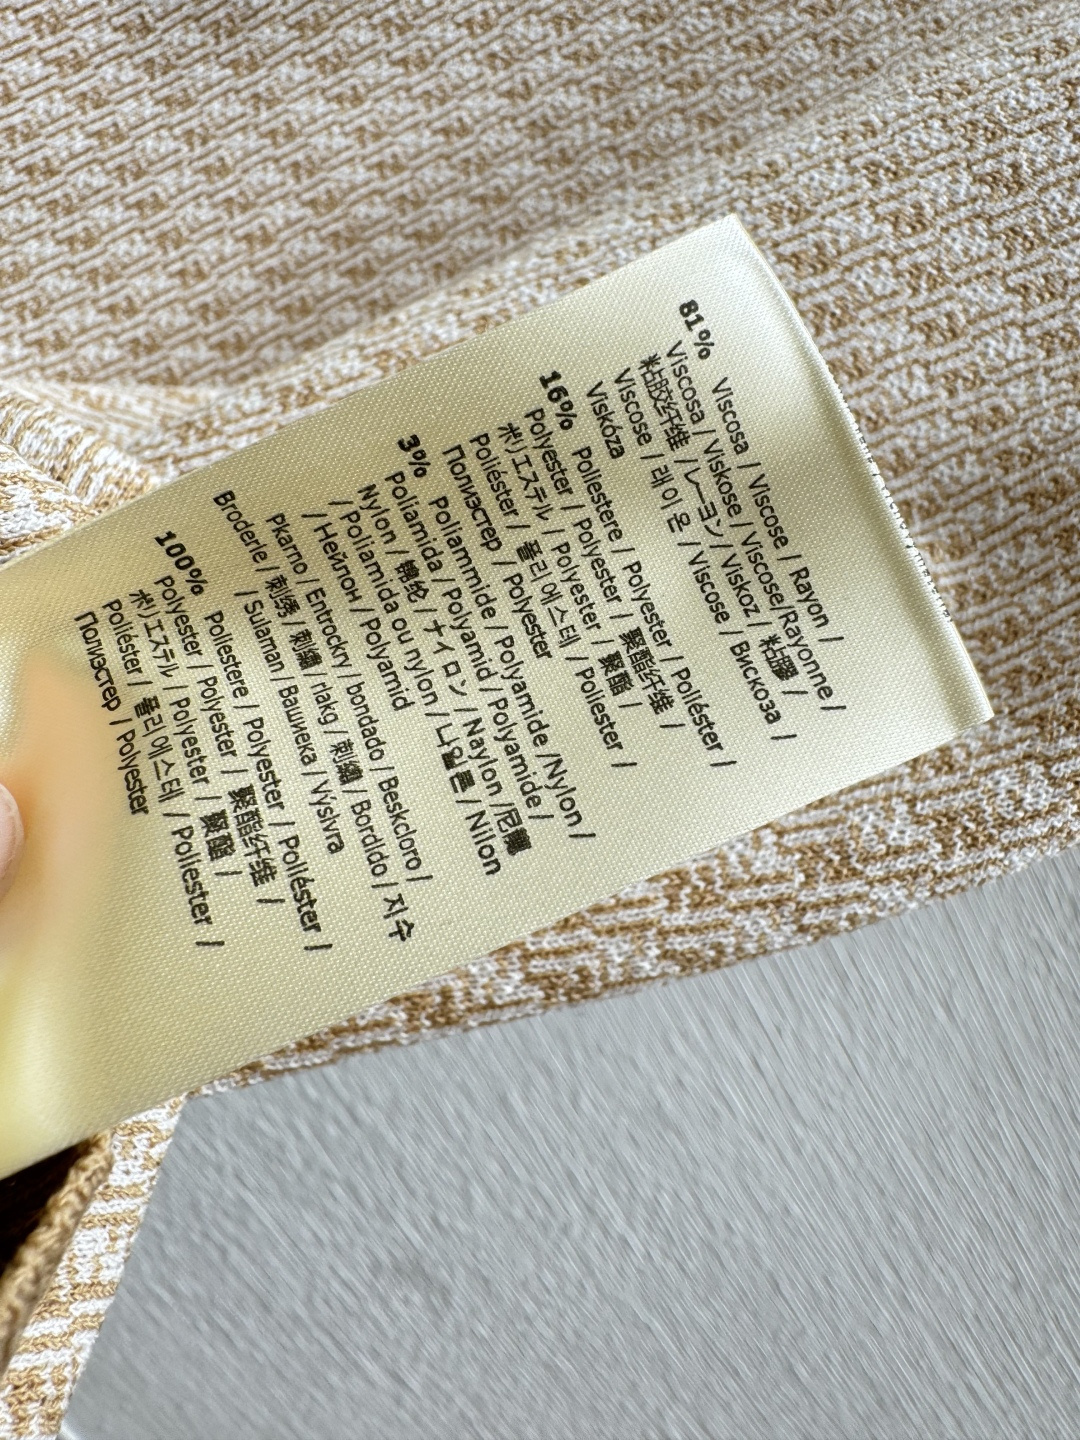 81% Viscosa / Viscose / Rayon /
Viscosa / Viskose / Viscose/Rayonne /
粘胶纤维 /レーヨン / Viskoz / 粘膠 /
Viscose / 레이온 / Viscose / Вискоза /
Viskóza
16% Poliestere / Polyester / Poliéster /
Polyester / Polyester / 聚酯纤维 /
ポリエステル / Polyester / 聚酯 /
Poliéster / 폴리에스테 / Poliester /
Полиэстер / Polyester
3% Poliammide / Polyamide /Nylon /
Poliamida / Polyamid / Polyamide /
Nylon / 锦纶 / ナイロン / Naylon /尼龍
/ Poliamida ou nylon / 나일론 / Nilon
/ Нейлон / Polyamid
Pkarno / Entrockry / bondado / Beskcloro /
Broderle / 刺绣 / 刺繍 / rlakg / 刺繡 / Bordldo / 지수
/ Sulaman / Вашивека / Výslvra
100% Poliestere / Polyester / Poliéster /
Polyester / Polyester / 聚酯纤维 /
ポリエステル / Polyester / 聚酯 /
Poliéster / 폴리에스테 / Poliester /
Полиэстер / Polyester